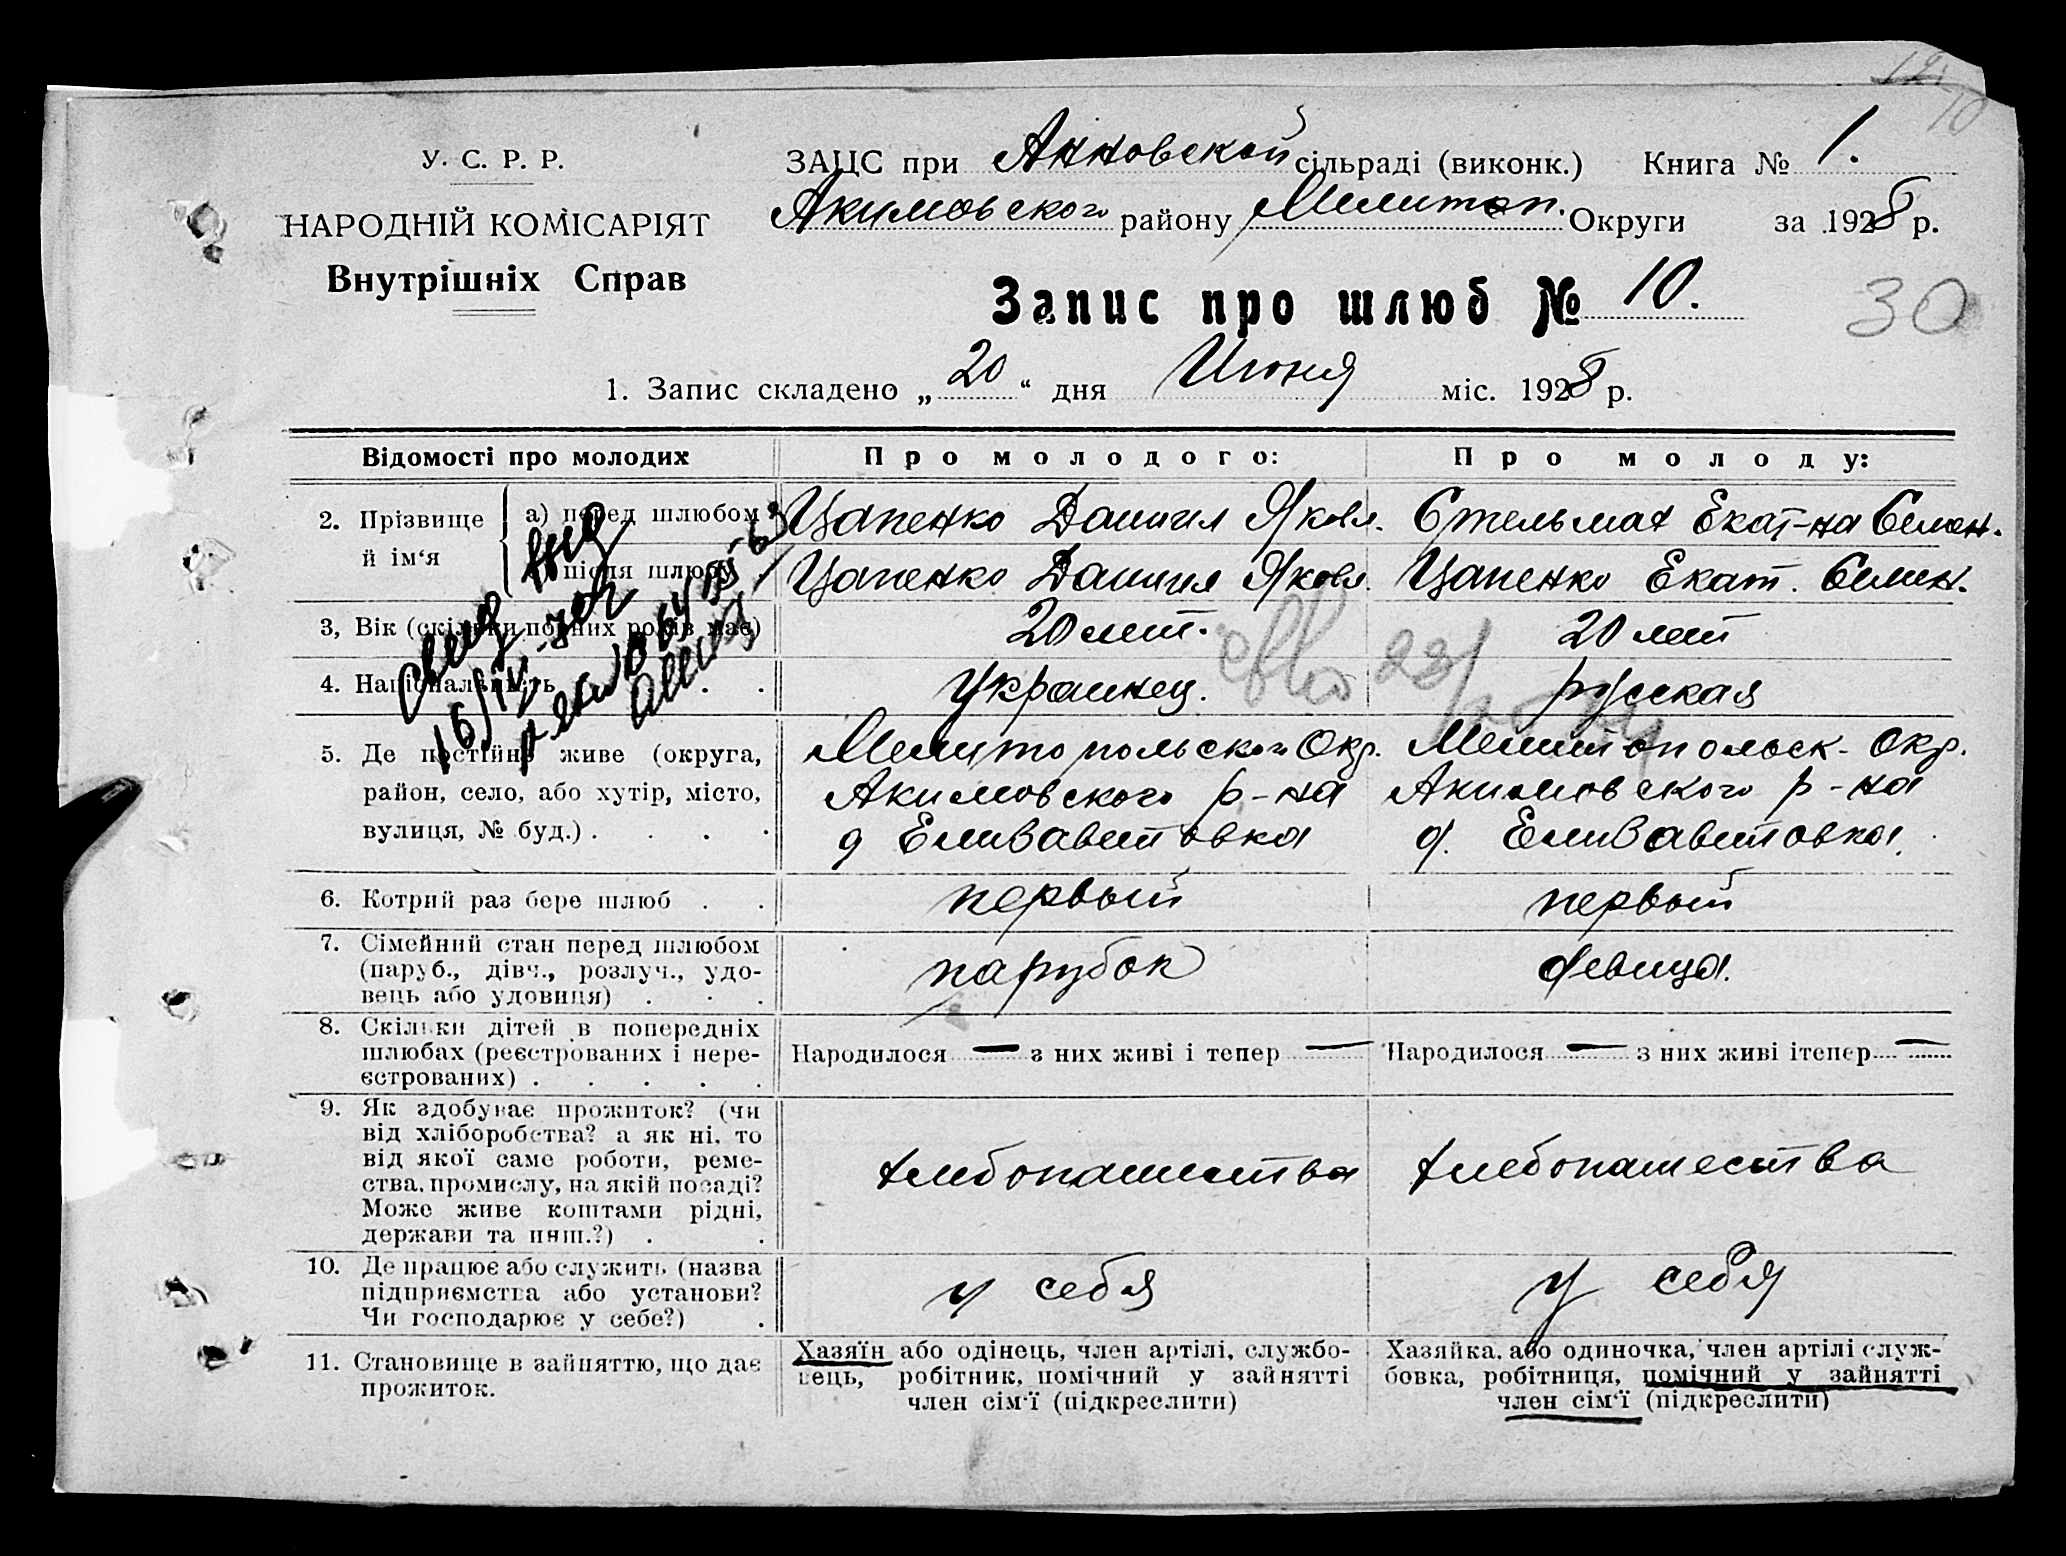 12
10
У. С. Р. Р.
НАРОДНІЙ КОМІСАРІЯТ
Внутрішніх Справ
ЗАЦС при Анновской сільраді (виконк.) Книга № 1.
Акимовского району Мелитоп. Округи за 1928 р.
Запис про шлюб № 10.
30
1. Запис складено „20“ дня Июня міс. 1928 р.
Відомості про молодих
Про молодого:
Про молоду:
2. Прізвище й ім‘я
а) перед шлюбом
Цапенко Даниил Яковл.
Стельмах Екат-на Семен.
після шлюбу
Цапенко Даниил Яковл.
Цапенко Екат. Семен.
3, Вік (скільки повних років має)
20 лет.
20 лет
4. Національність
Украинец.
русская
5. Де постійно живе (округа, район, село, або хутір, місто, вулиця, № буд.)
Мелитопольского Окр.
Акимовского р-на
д Елизаветовка
Мелитопольск- Окр.
Акимовского р-на
д. Елизаветовка
6. Котрий раз бере шлюб
первый
первый
7. Сімейний стан перед шлюбом
(паруб., дівч., розлуч., удо-
вець або удовиця)
парубок
девица.
8. Скільки дітей в попередніх
шлюбах (реєстрованих і нере-
єстрованих)
Народилося — з них живі і тепер —
Народилося — з них живі ітепер —
9. Як здобуває прожиток? (чи
від хліборобства? а як ні, то
від якої саме роботи, реме-
ства, промислу, на якій посаді?
Може живе коштами рідні,
держави та инш.?)
хлебопашества
хлебопашества
10. Де працює або служить (назва
підприємства або установи?
Чи господарює у себе?)
у себя
у себя
11. Становище в зайняттю, що дає
прожиток.
Хазяїн або одінець, член артілі, службо-
вець, робітник, помічний у зайнятті
член сім‘ї (підкреслити)
Хазяйка, або одиночка, член артілі служ-
бовка, робітниця, помічний у зайнятті
член сім‘ї (підкреслити)